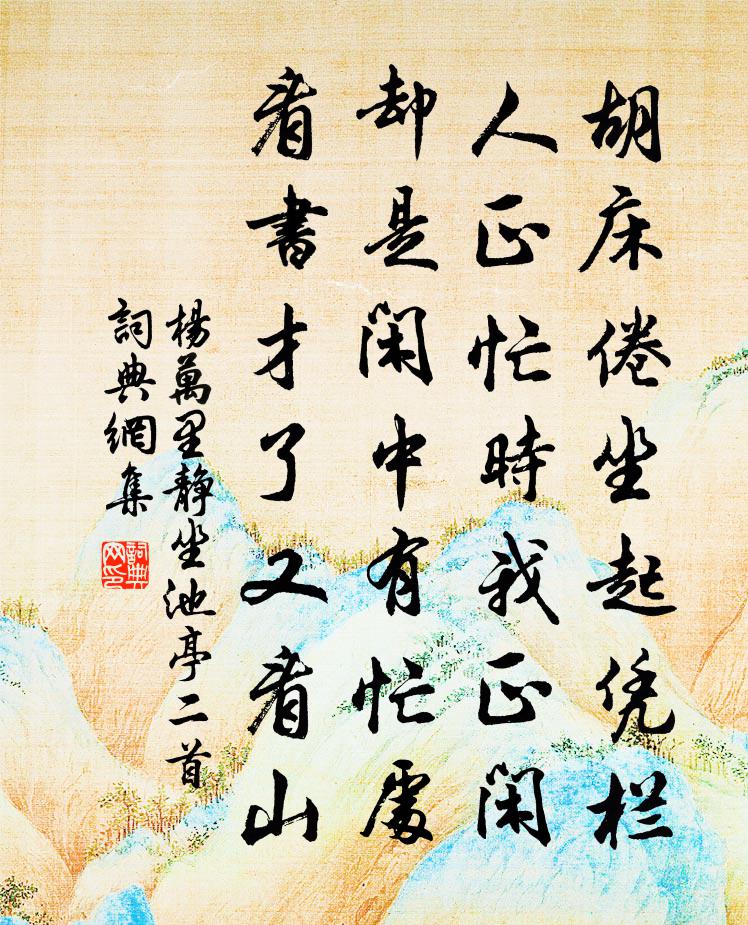 胡床倦坐起凭栏
人正忙時我正闲
却是闲中有忙處
看書才了又看山
楊萬里静坐池亭二首
詞典網集
詞典网印